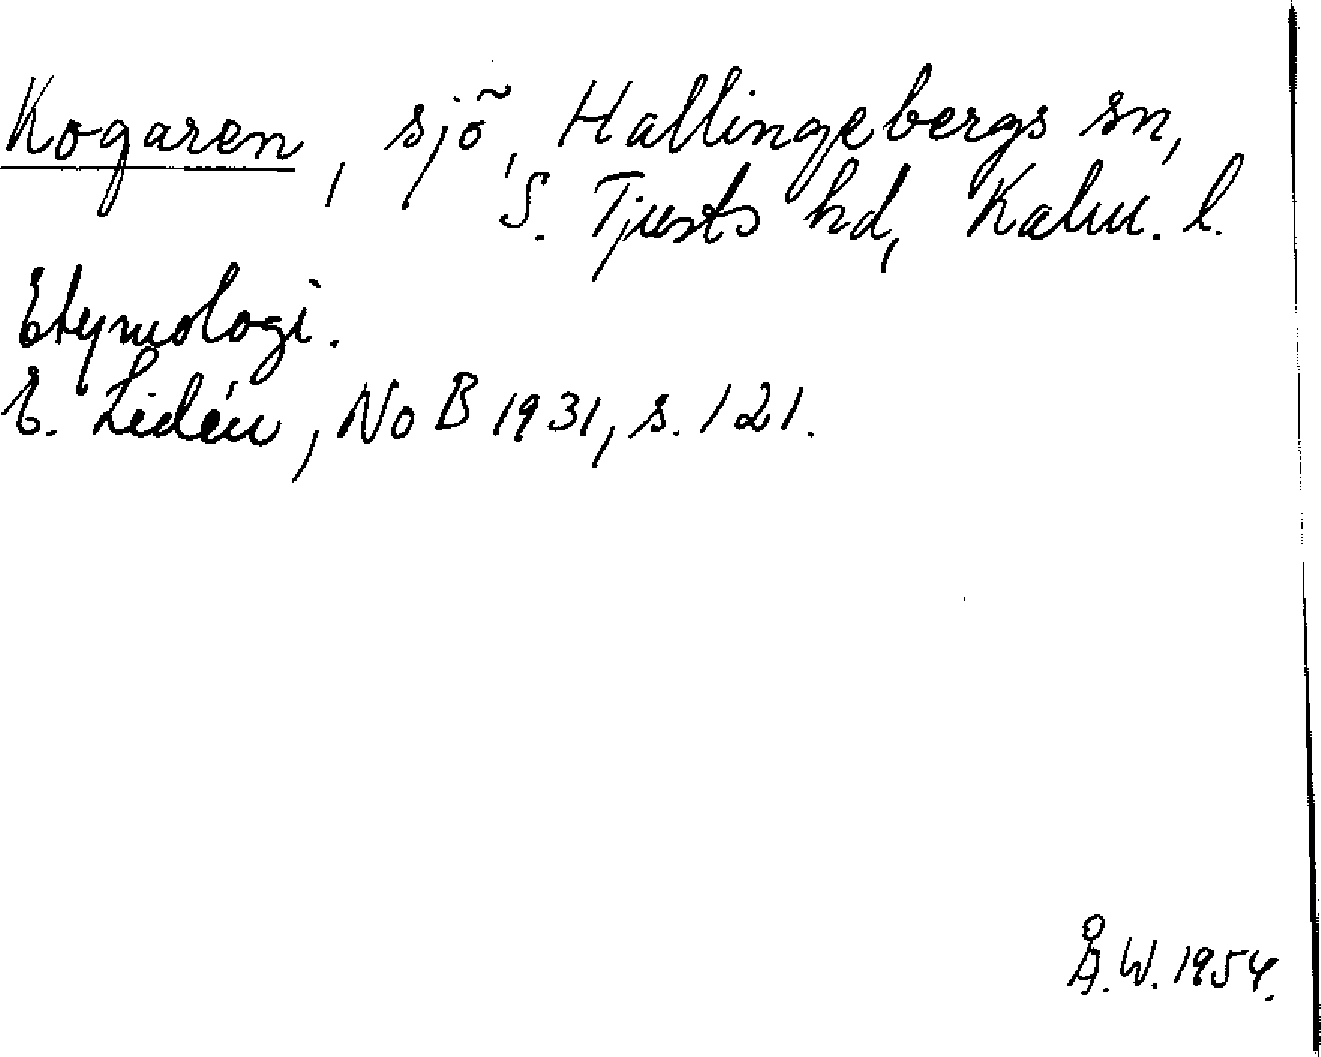 Kogaren, sjö, Hallingebergs sn,
S. Tjusts hd, Kalm. l.
Etymologi.
E. Lidén, NoB 1931, s. 121.
Å.W. 1954.